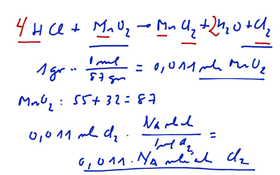 4HCl + MnO₂ → MnCl₂ + 2H₂O + Cl₂
1gr · 1mol / 87gr = 0,011 mol MnO₂
MnO₂ : 55 + 32 = 87
0,011 mol Cl₂ · NA molec / 1mol Cl₂ =
0,011 · NA molec Cl₂